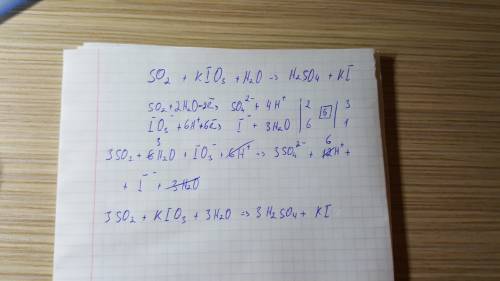 SO₂ + KIO₃ + H₂O → H₂SO₄ + KI
SO₂ + 2H₂O - 2ē → SO₄²⁻ + 4H⁺ | 2 | 6 | 3
IO₃⁻ + 6H⁺ + 6ē → I⁻ + 3H₂O | 6 | | 1
3SO₂ + 6 3 H₂O + IO₃⁻ + 6H⁺ → 3SO₄²⁻ + 12 6 H⁺ +
+ I⁻ + 3H₂O
3SO₂ + KIO₃ + 3H₂O → 3H₂SO₄ + KI